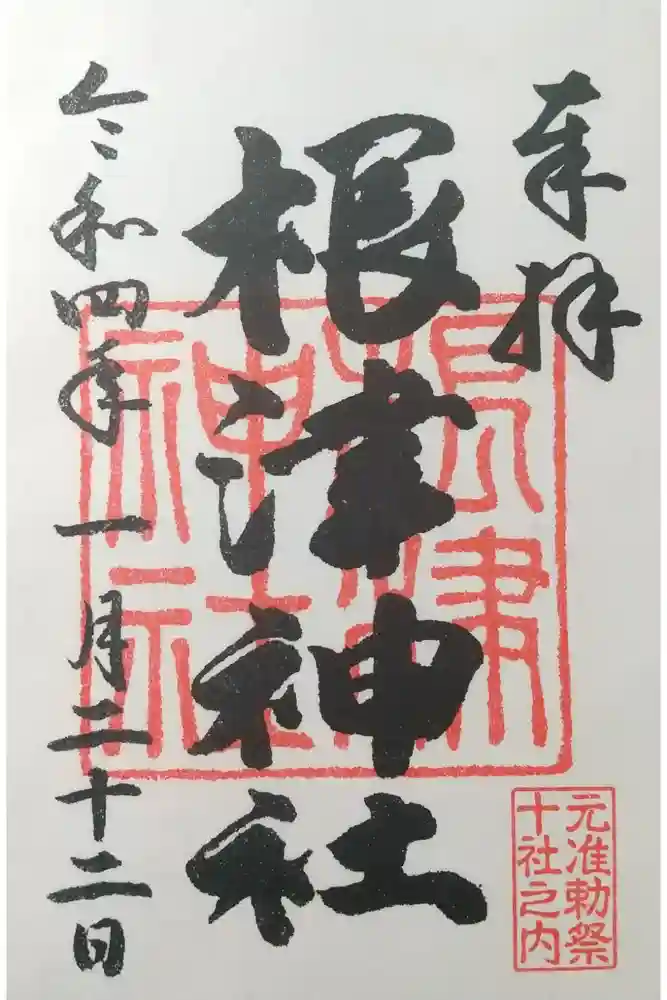 奉拝
根津神社
根津神社
元准勅祭
十社之内
令和四年一月二十二日